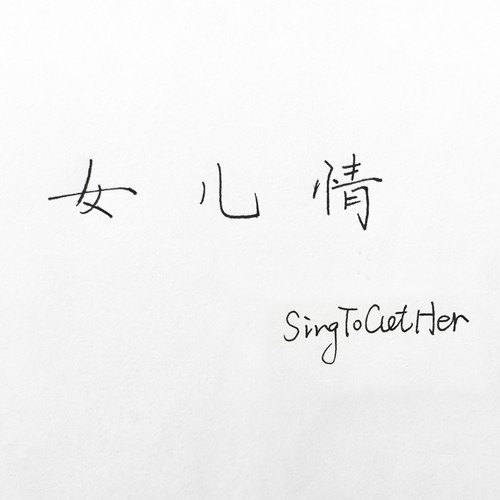 女儿情
SingToGetHer